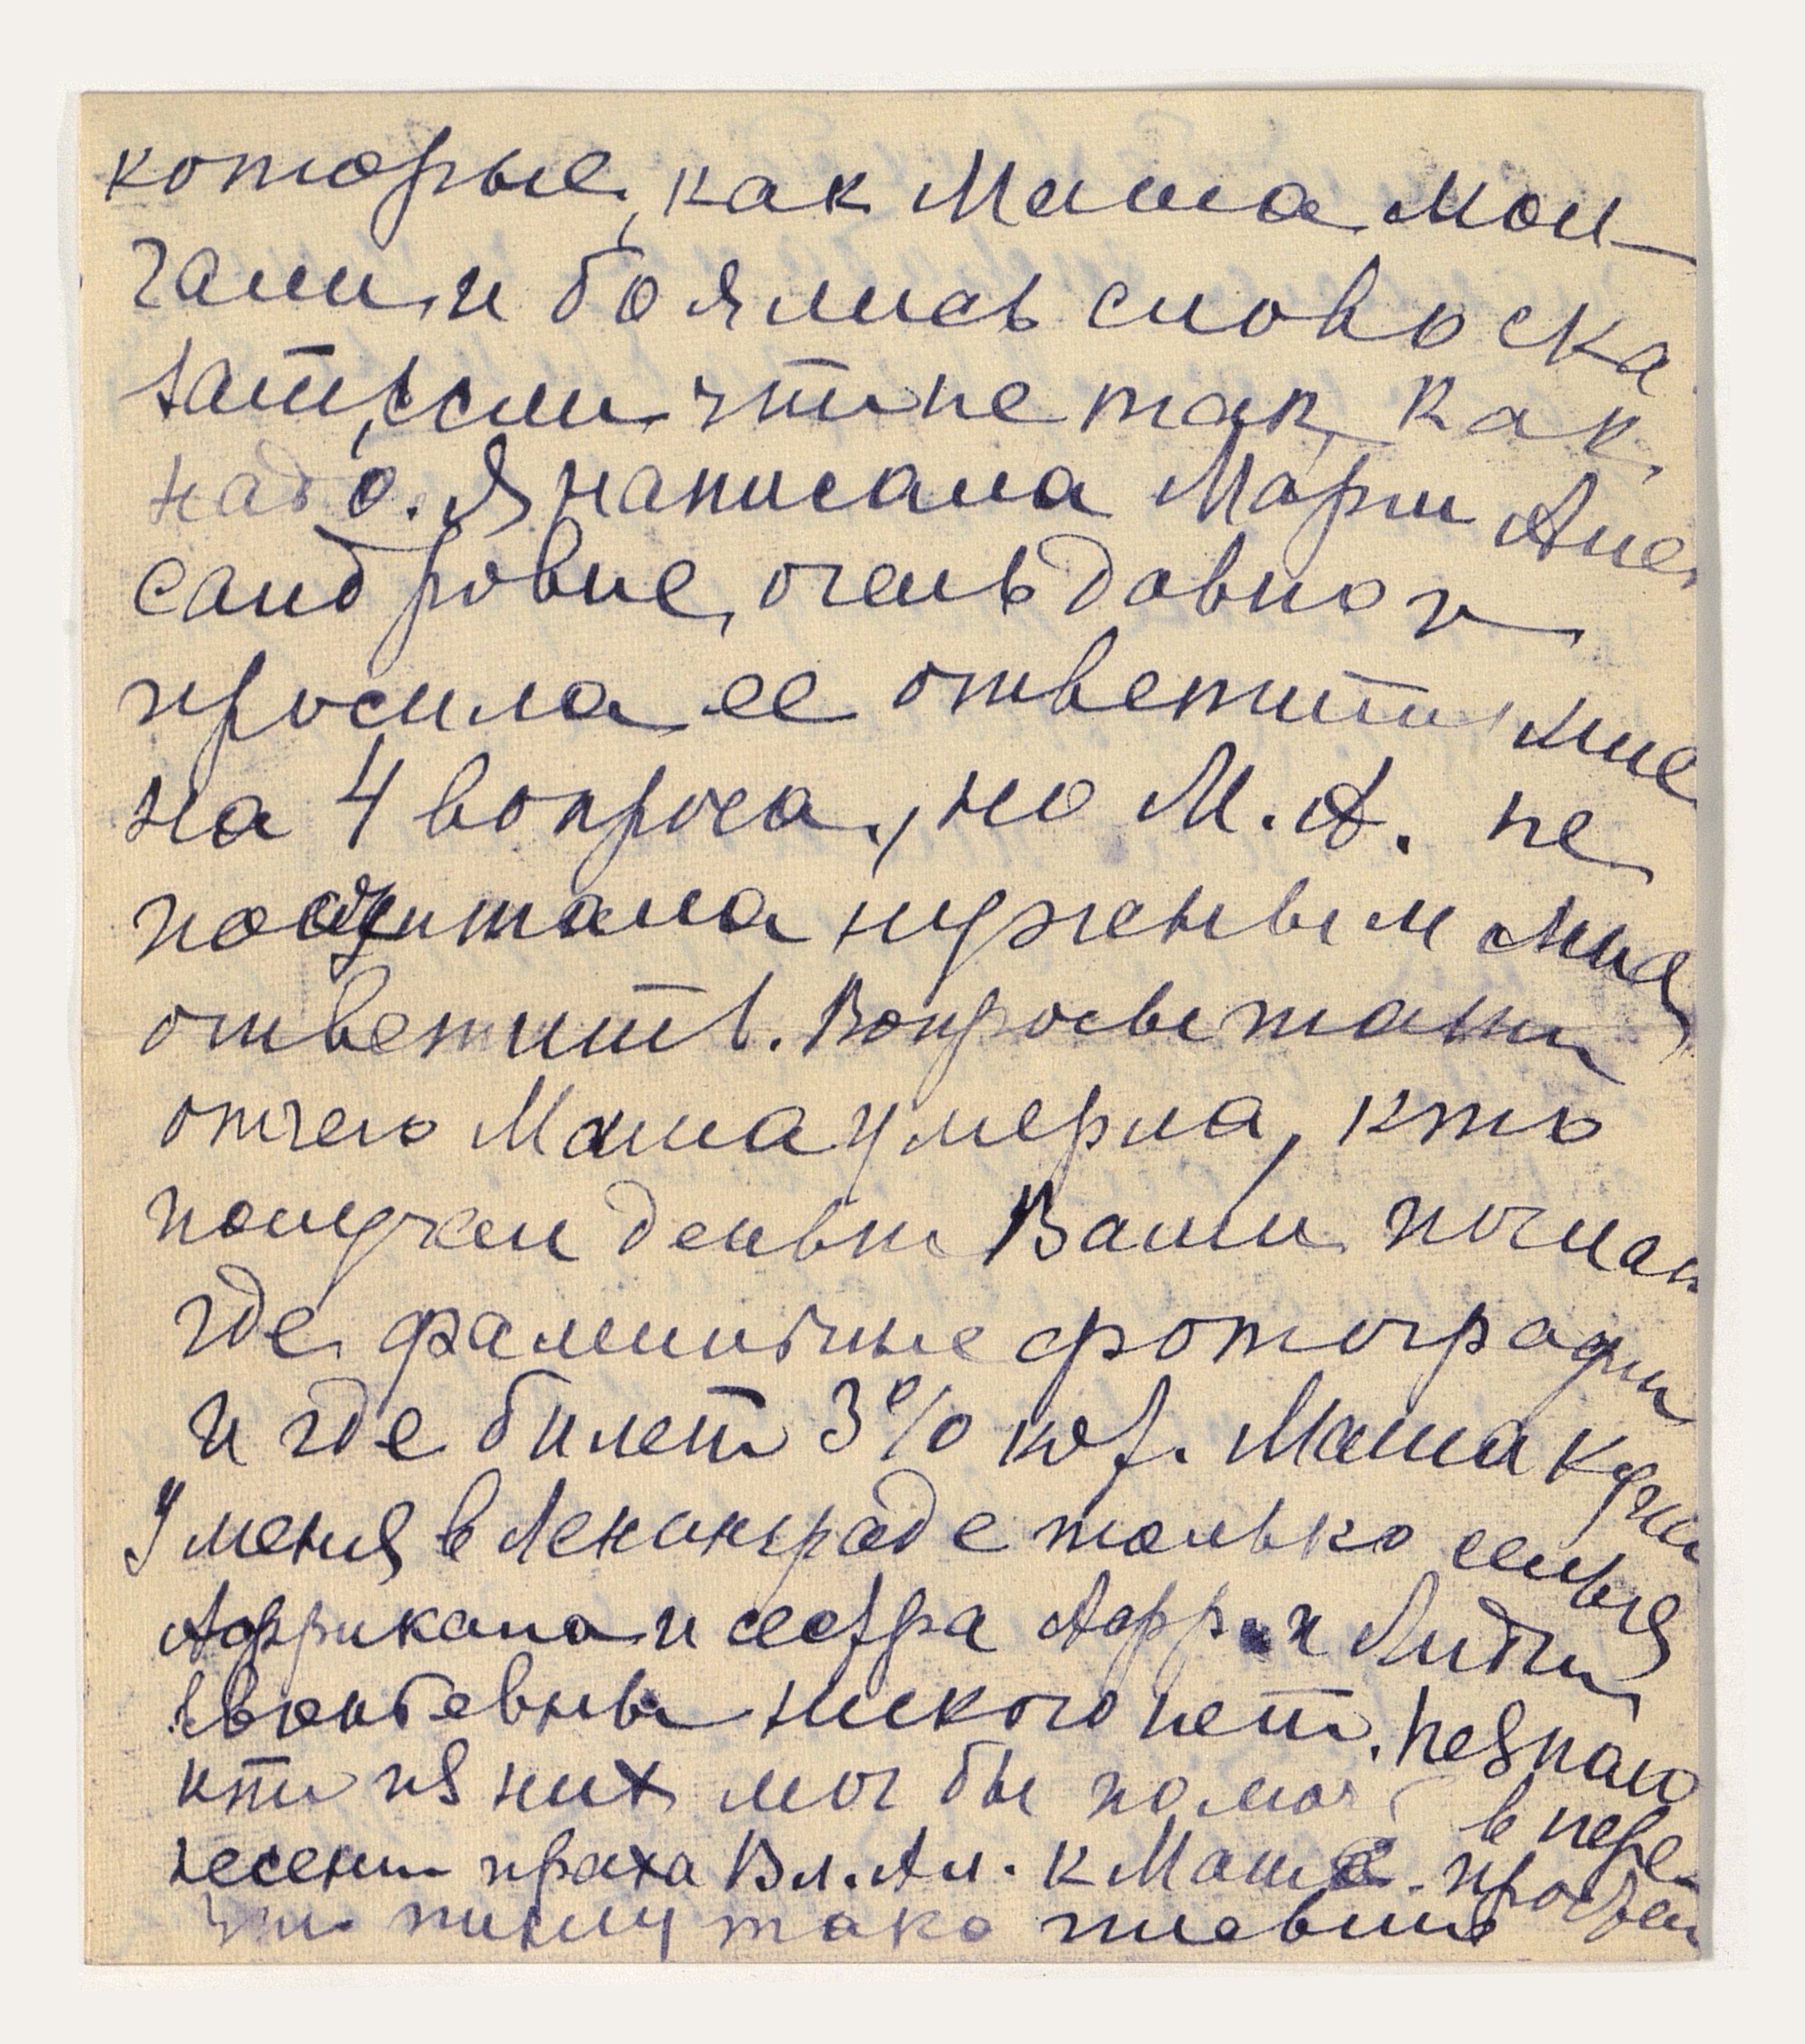 которые, как Маша мол-
чали и боялись слово ска
зать, если что не так, как
надо. Я написала Марии Алек
сандровне, очень давно и
просила ее ответить мне
на 4 вопроса, но М. А. не
посчитала нужным мне
ответить. Вопросы таки
отчего Маша умерла, кто
получал деньги Вами послан
где фамильные фотографи
и где билет 3% Маша
У меня в Ленинграде только семья
Аффрикана и сестра Аффр. и Лидии
никого нет. Не знаю
кто из них мог бы помоч в пере-
несении праха Вл. Ал. к Маше. Простите
что пишу